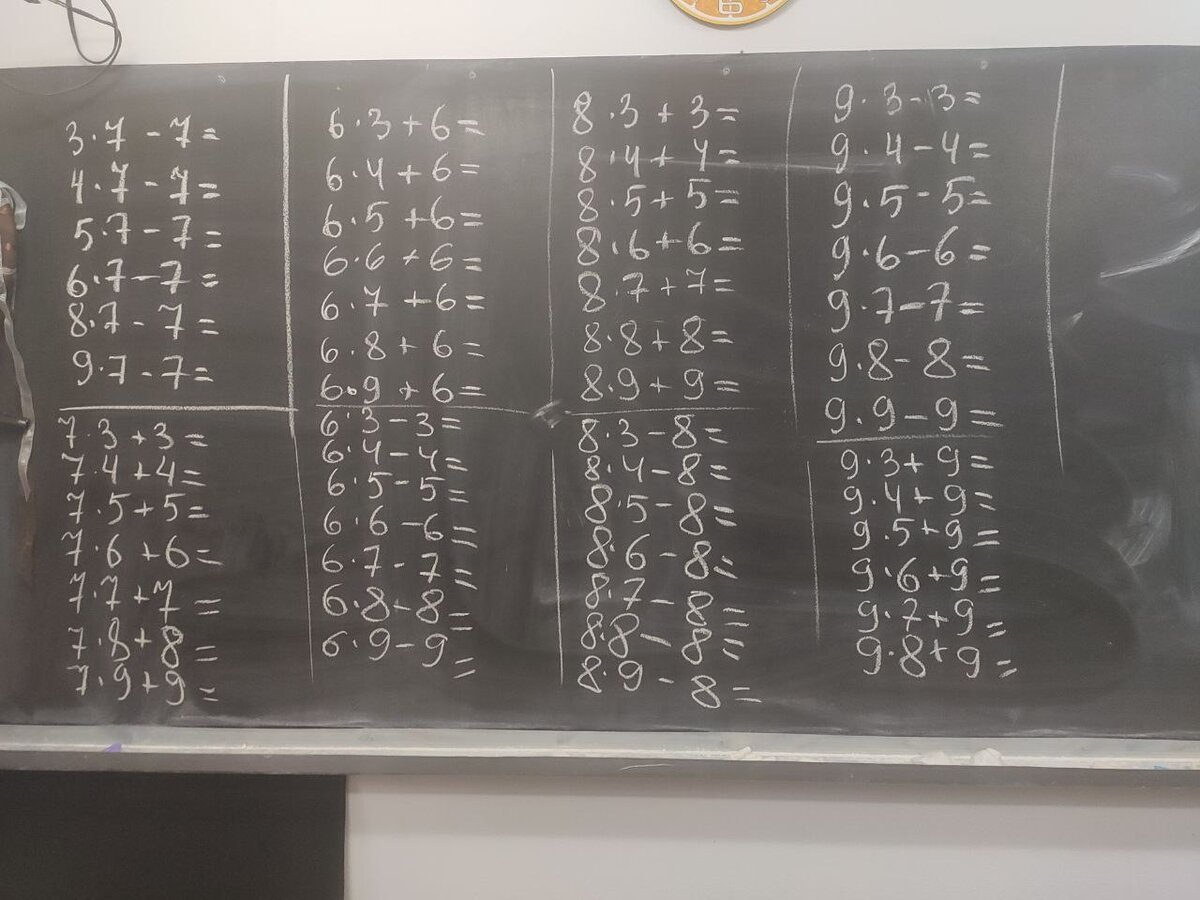 3·7-7=
4·7-7=
5·7-7=
6·7-7=
8·7-7=
9·7-7=
7·3+3=
7·4+4=
7·5+5=
7·6+6=
7·7+7=
7·8+8=
7·9+9=
6·3+6=
6·4+6=
6·5+6=
6·6+6=
6·7+6=
6·8+6=
6·9+6=
6·3-3=
6·4-4=
6·5-5=
6·6-6=
6·7-7=
6·8-8=
6·9-9=
8·3+3=
8·4+4=
8·5+5=
8·6+6=
8·7+7=
8·8+8=
8·9+9=
8·3-8=
8·4-8=
8·5-8=
8·6-8=
8·7-8=
8·8-8=
8·9-8=
9·3-3=
9·4-4=
9·5-5=
9·6-6=
9·7-7=
9·8-8=
9·9-9=
9·3+9=
9·4+9=
9·5+9=
9·6+9=
9·7+9=
9·8+9=